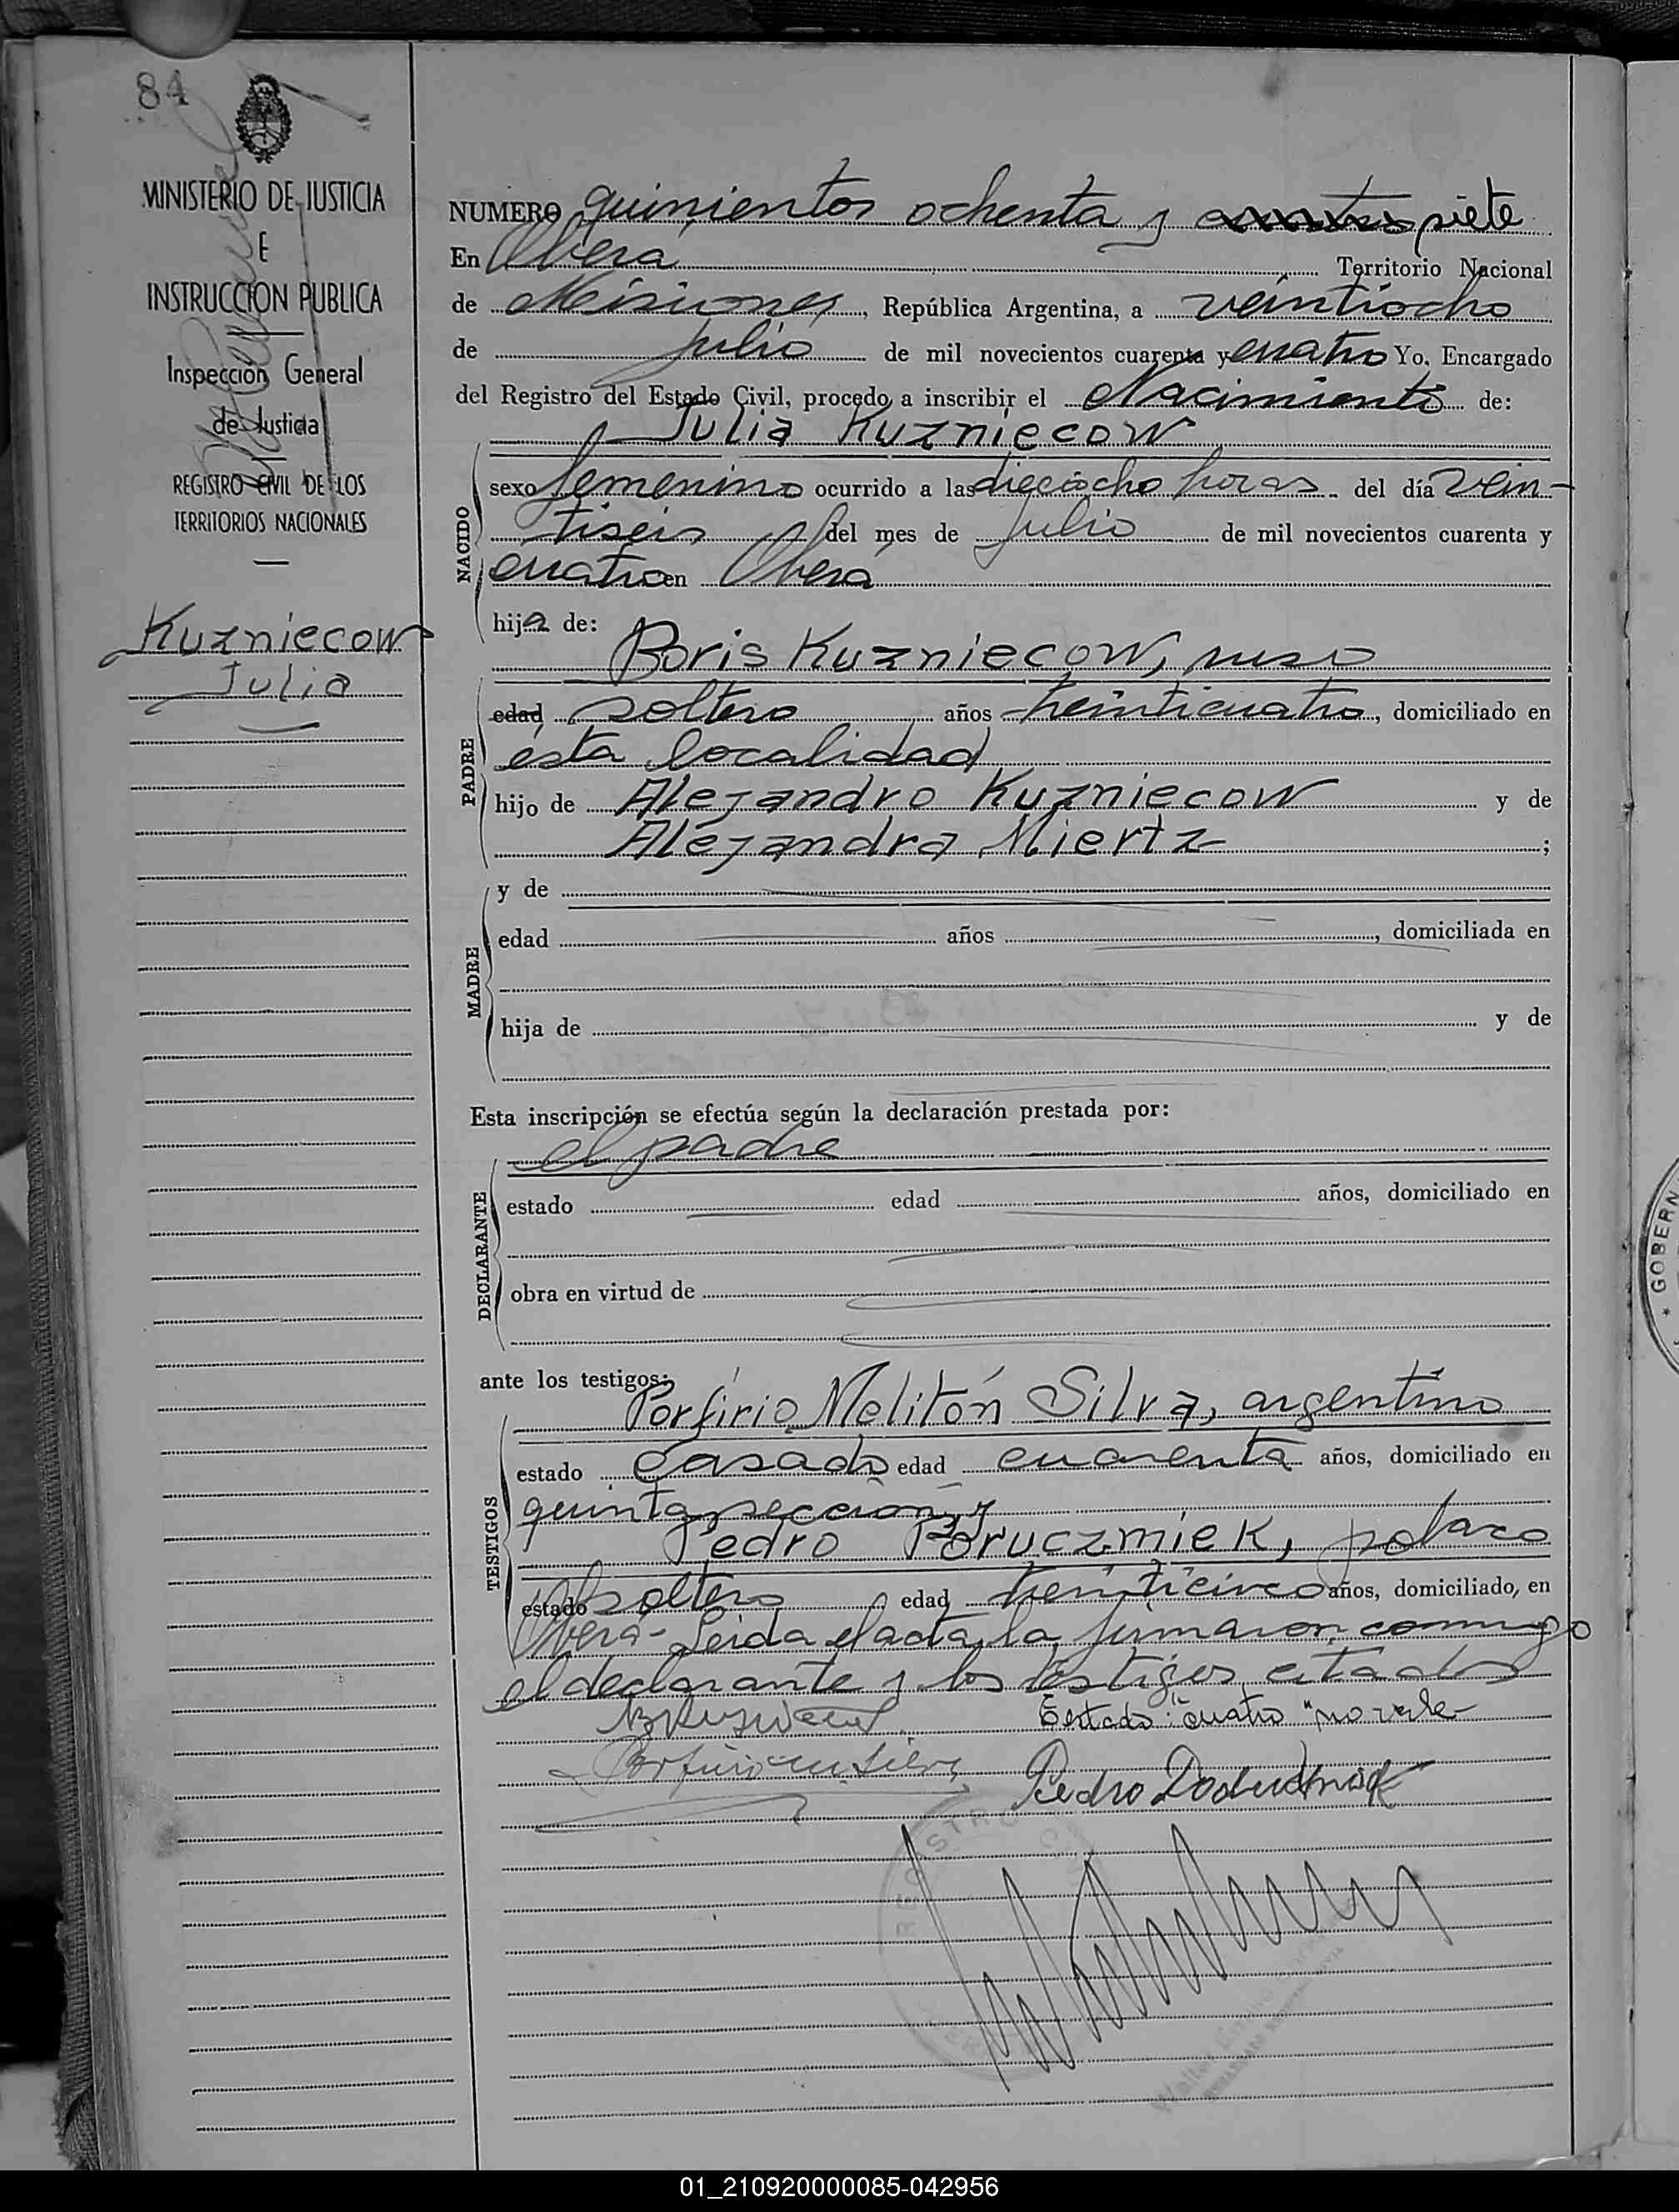 84
MINISTERIO DE JUSTICIA
E
INSTRUCCION PUBLICA
Inspección General
de Justicia
REGISTRO CIVIL DE LOS
TERRITORIOS NACIONALES
Kuzniecow
Julia
NUMERO quinientos ochenta y cuatro siete
En Oberá Territorio Nacional
de Misiones, República Argentina, a veintiocho
de Julio de mil novecientos cuarenta y cuatro Yo, Encargado
del Registro del Estado Civil, procedo a inscribir el Nacimiento de:
Julia Kuzniecow
NACIDO
sexo femenino ocurrido a las dieciocho horas del día vein-
tiseis del mes de Julio de mil novecientos cuarenta y
cuatro en Oberá
hija de:
Boris Kuzniecow, ruso
PADRE
edad soltero años treinticuatro, domiciliado en
ésta localidad
hijo de Alejandro Kuzniecow y de
Alejandra Miertz ;
MADRE
y de
edad años , domiciliada en
hija de y de
Esta inscripción se efectúa según la declaración prestada por:
el padre
DECLARANTE
estado edad años, domiciliado en
obra en virtud de
ante los testigos:
Porfirio Melitón Silva, argentino
TESTIGOS
estado Casado edad cuarenta años, domiciliado en
quinta sección y
Pedro Poruczmiek, polaco
estado soltero edad treinticinco años, domiciliado, en
Oberá- Leida el acta, la firmaron conmigo
el declarante y los testigos citados
Estado: "cuatro" no vale
Pedro
REGISTRO
GOBERN
01_210920000085-042956